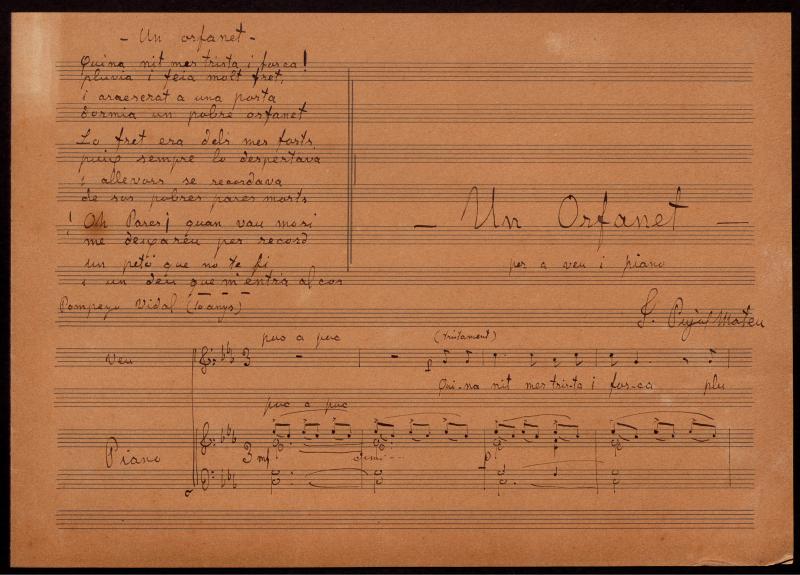 - Un orfanet -
Quina nit mes trista i fosca!
pluvia i feia molt fret,
i araeserat a una porta
dormia un pobre orfanet
Lo fret era dels mes forts
puig sempre lo despertava
i allevors se recordava
de sos pobres pares morts
¡ Oh Pares¡ quan vau mori
me deixareu per record
un petó que no te fi
i un deu que m'entria al cor
Pompeyo Vidal (10 anys)
- Un Orfanet -
per a veu i piano
F. Pujol Mateu
poc a poc
(tristament)
Veu
3
Qui-na nit mes tris-ta i fos-ca plu
poc a poc
Piano
3 mf
dim ---
p